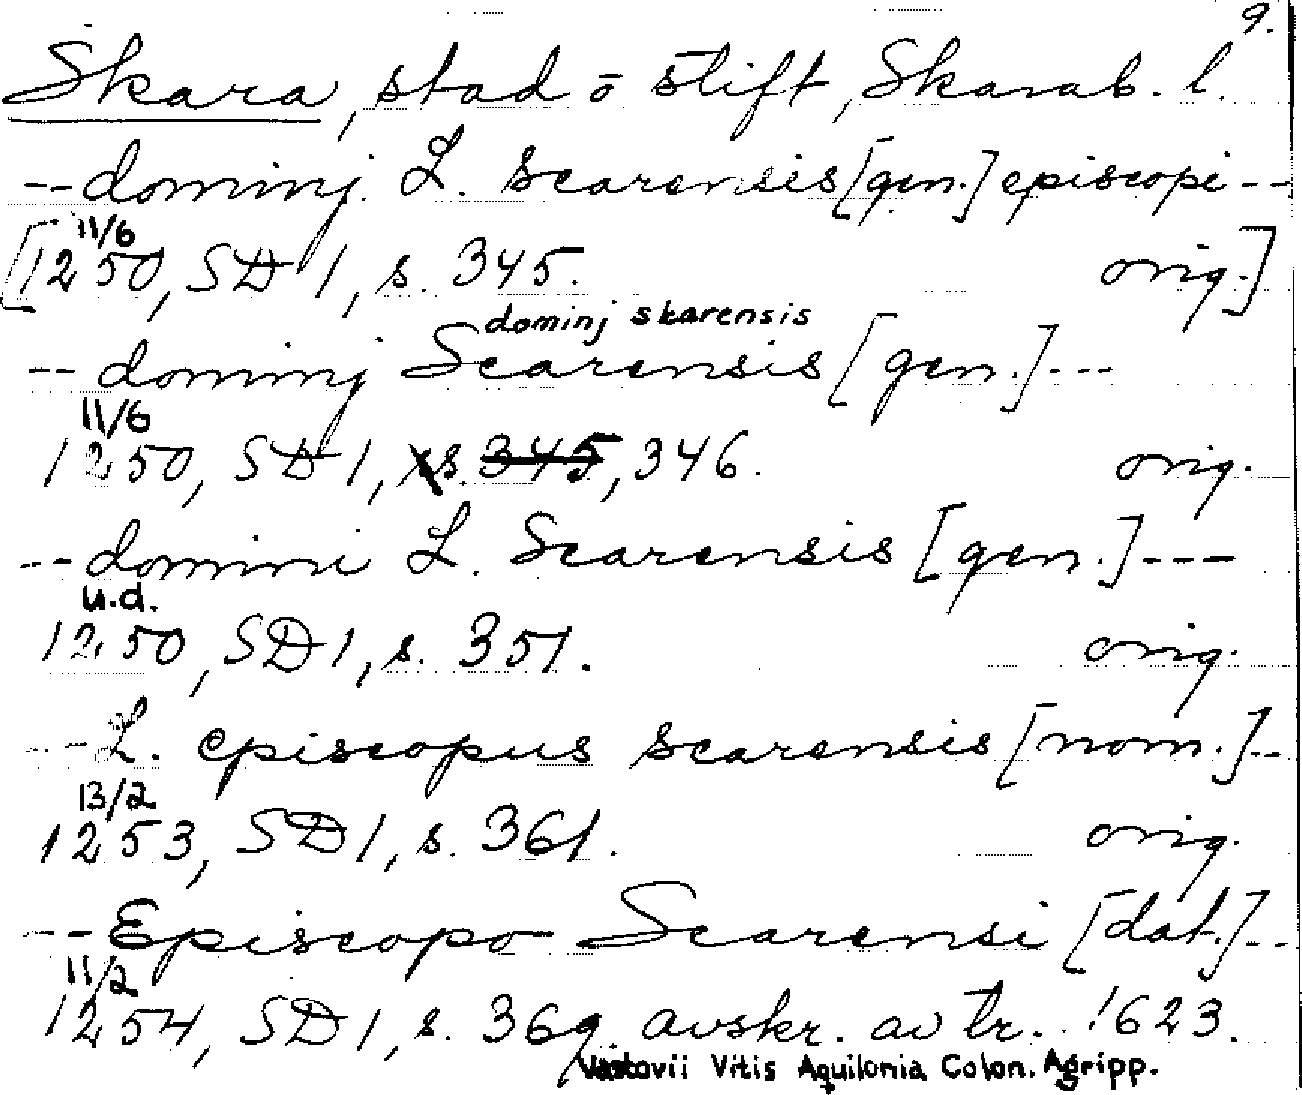 9.
Skara, stad o stift, Skarab. l.
-- dominj L. scarensis [gen.] episcopi --
11/6
[1250, SD 1, s. 345. orig.]
dominj skarensis
-- dominj Scarensis [gen.] ---
11/6
1250, SD 1, s. 345, 346. orig.
-- domini L. Scarensis [gen.] ---
u.d.
1250, SD 1, s. 351. orig.
-- L. episcopus scarensis [nom.] --
13/2
1253, SD 1, s. 361. orig.
-- Episcopo Scarensi [dat.] --
11/2
1254, SD 1, s. 369 avskr. av tr. 1623.
Vastovii Vitis Aquilonia Colon. Agripp.